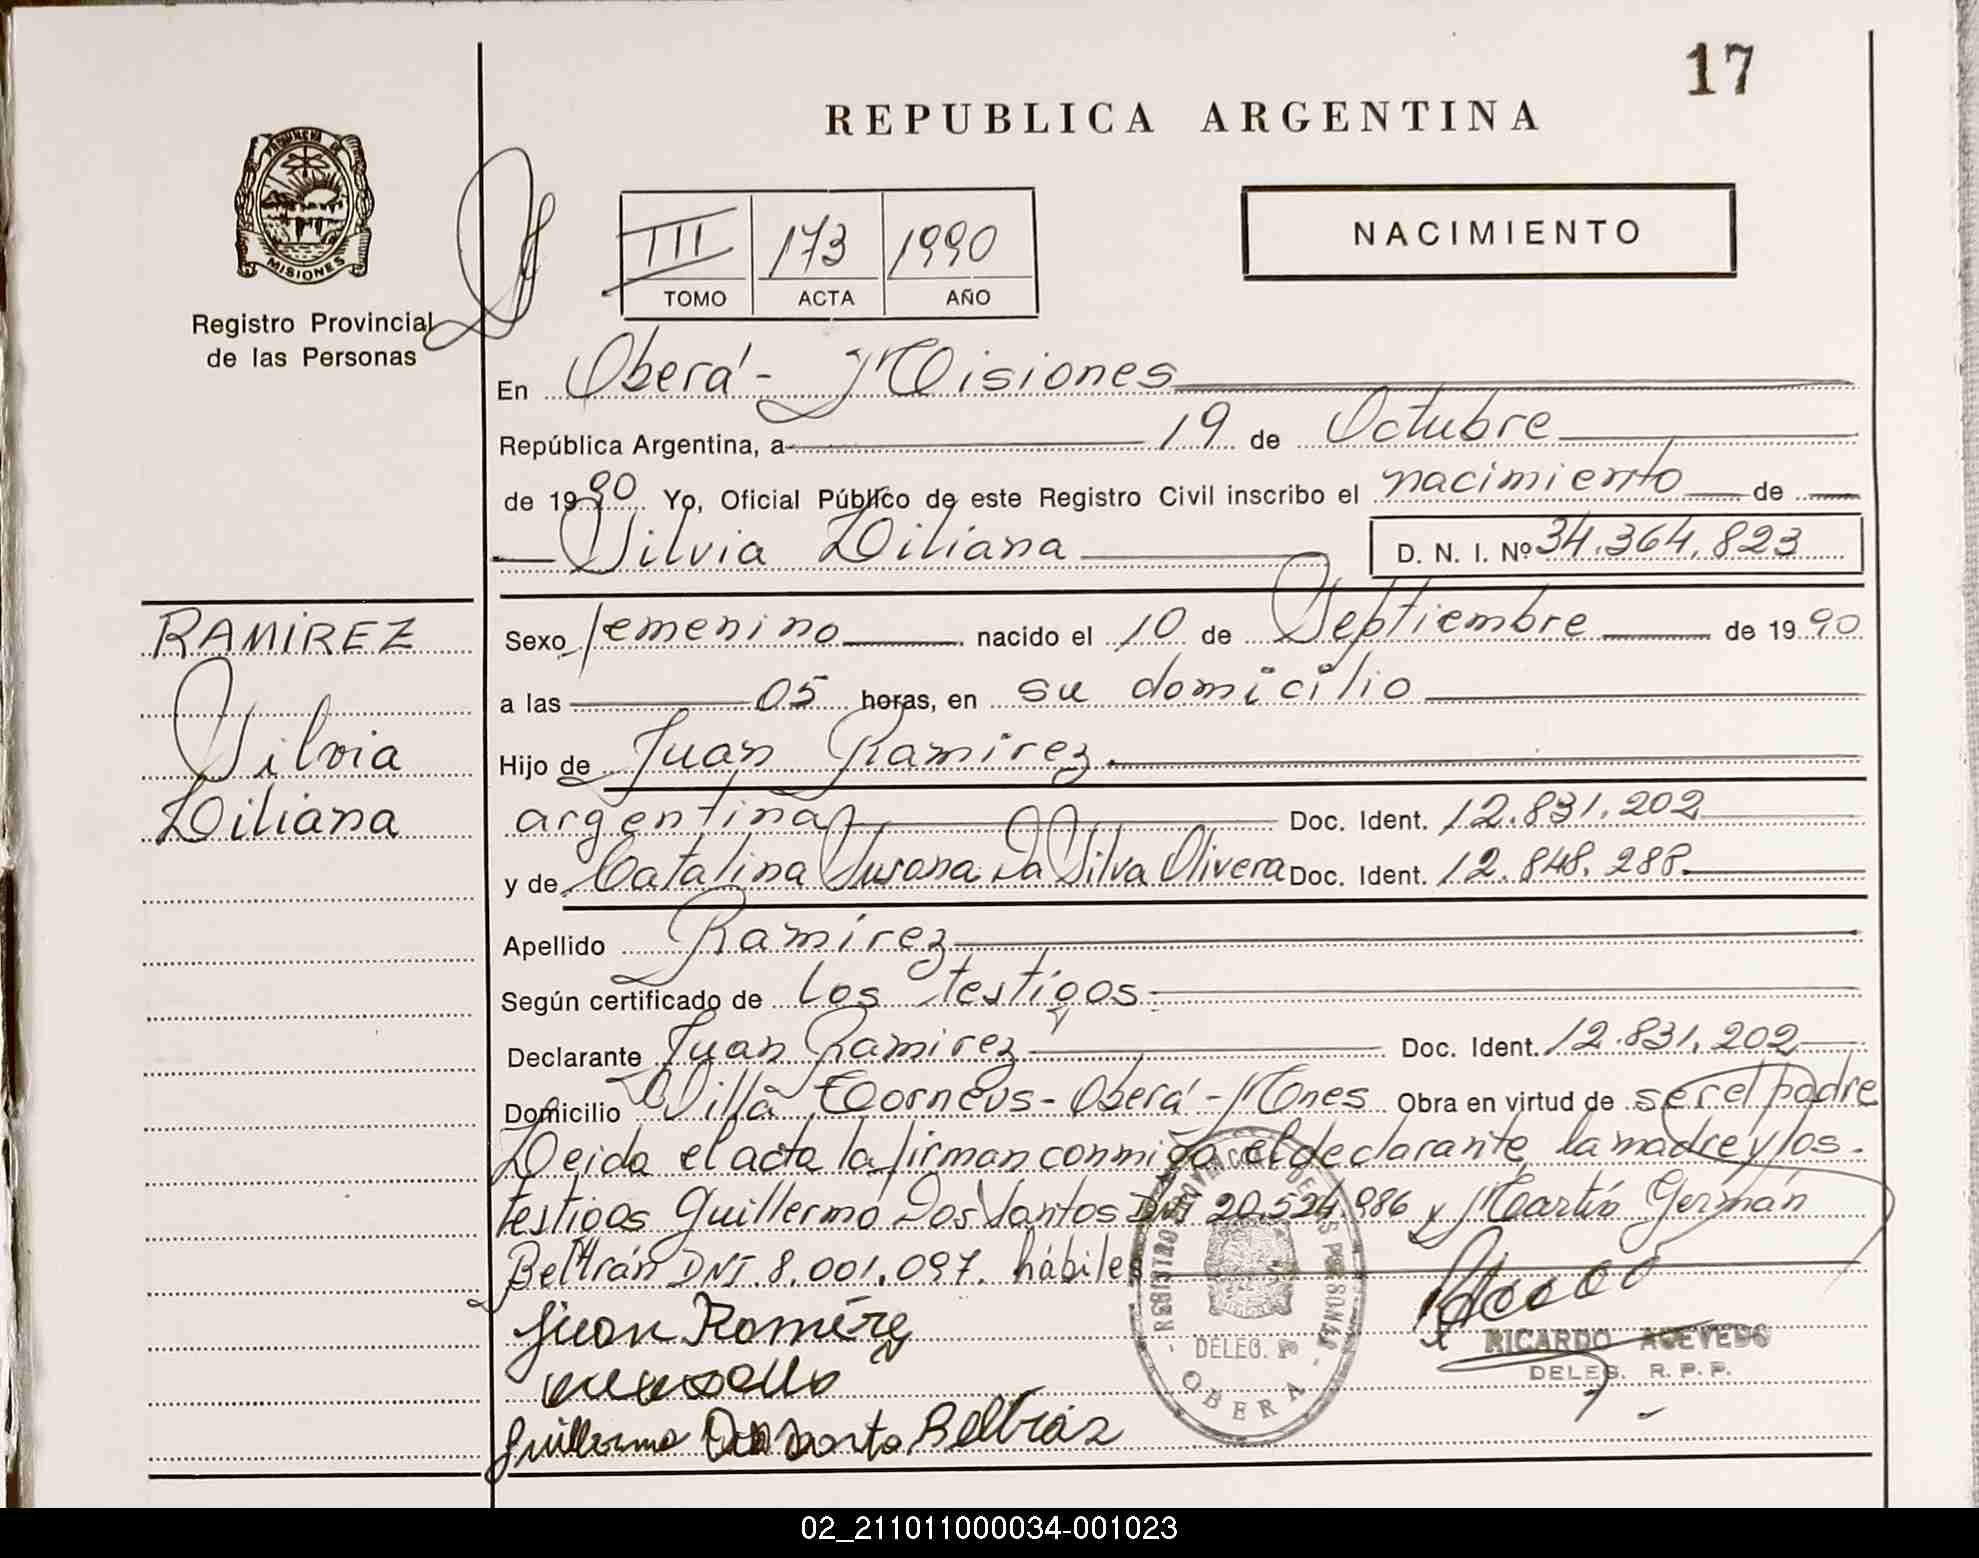 17
REPUBLICA ARGENTINA
PROVINCIA DE
MISIONES
Registro Provincial
de las Personas
III 173 1990
TOMO ACTA AÑO
NACIMIENTO
En Oberá - Misiones
República Argentina, a 19 de Octubre
de 1990 Yo, Oficial Público de este Registro Civil inscribo el nacimiento de
Silvia Liliana D. N. I. Nº 34.364.823
RAMIREZ
Silvia
Liliana
Sexo femenino nacido el 10 de Septiembre de 1990
a las 05 horas, en su domicilio
Hijo de Juan Ramirez
argentina Doc. Ident. 12.831.202
y de Catalina Susana Da Silva Olivera Doc. Ident. 12.848.288
Apellido Ramírez
Según certificado de los testigos
Declarante Juan Ramirez Doc. Ident. 12.831.202
Domicilio Villa Torneus - Oberá - Mnes Obra en virtud de ser el padre
Leida el acta la firman conmigo el declarante, la madre y los
testigos Guillermo Dos Santos DNI 20.524.986 y Martín Germán
Beltrán DNI 8.001.097. hábiles
Juan Romérez
RICARDO ACEVEDO
DELEG. R.P.P.
REGISTRO PROVINCIAL DE LAS PERSONAS
DELEG.
OBERA
Guillermo Beltrán
02_211011000034-001023